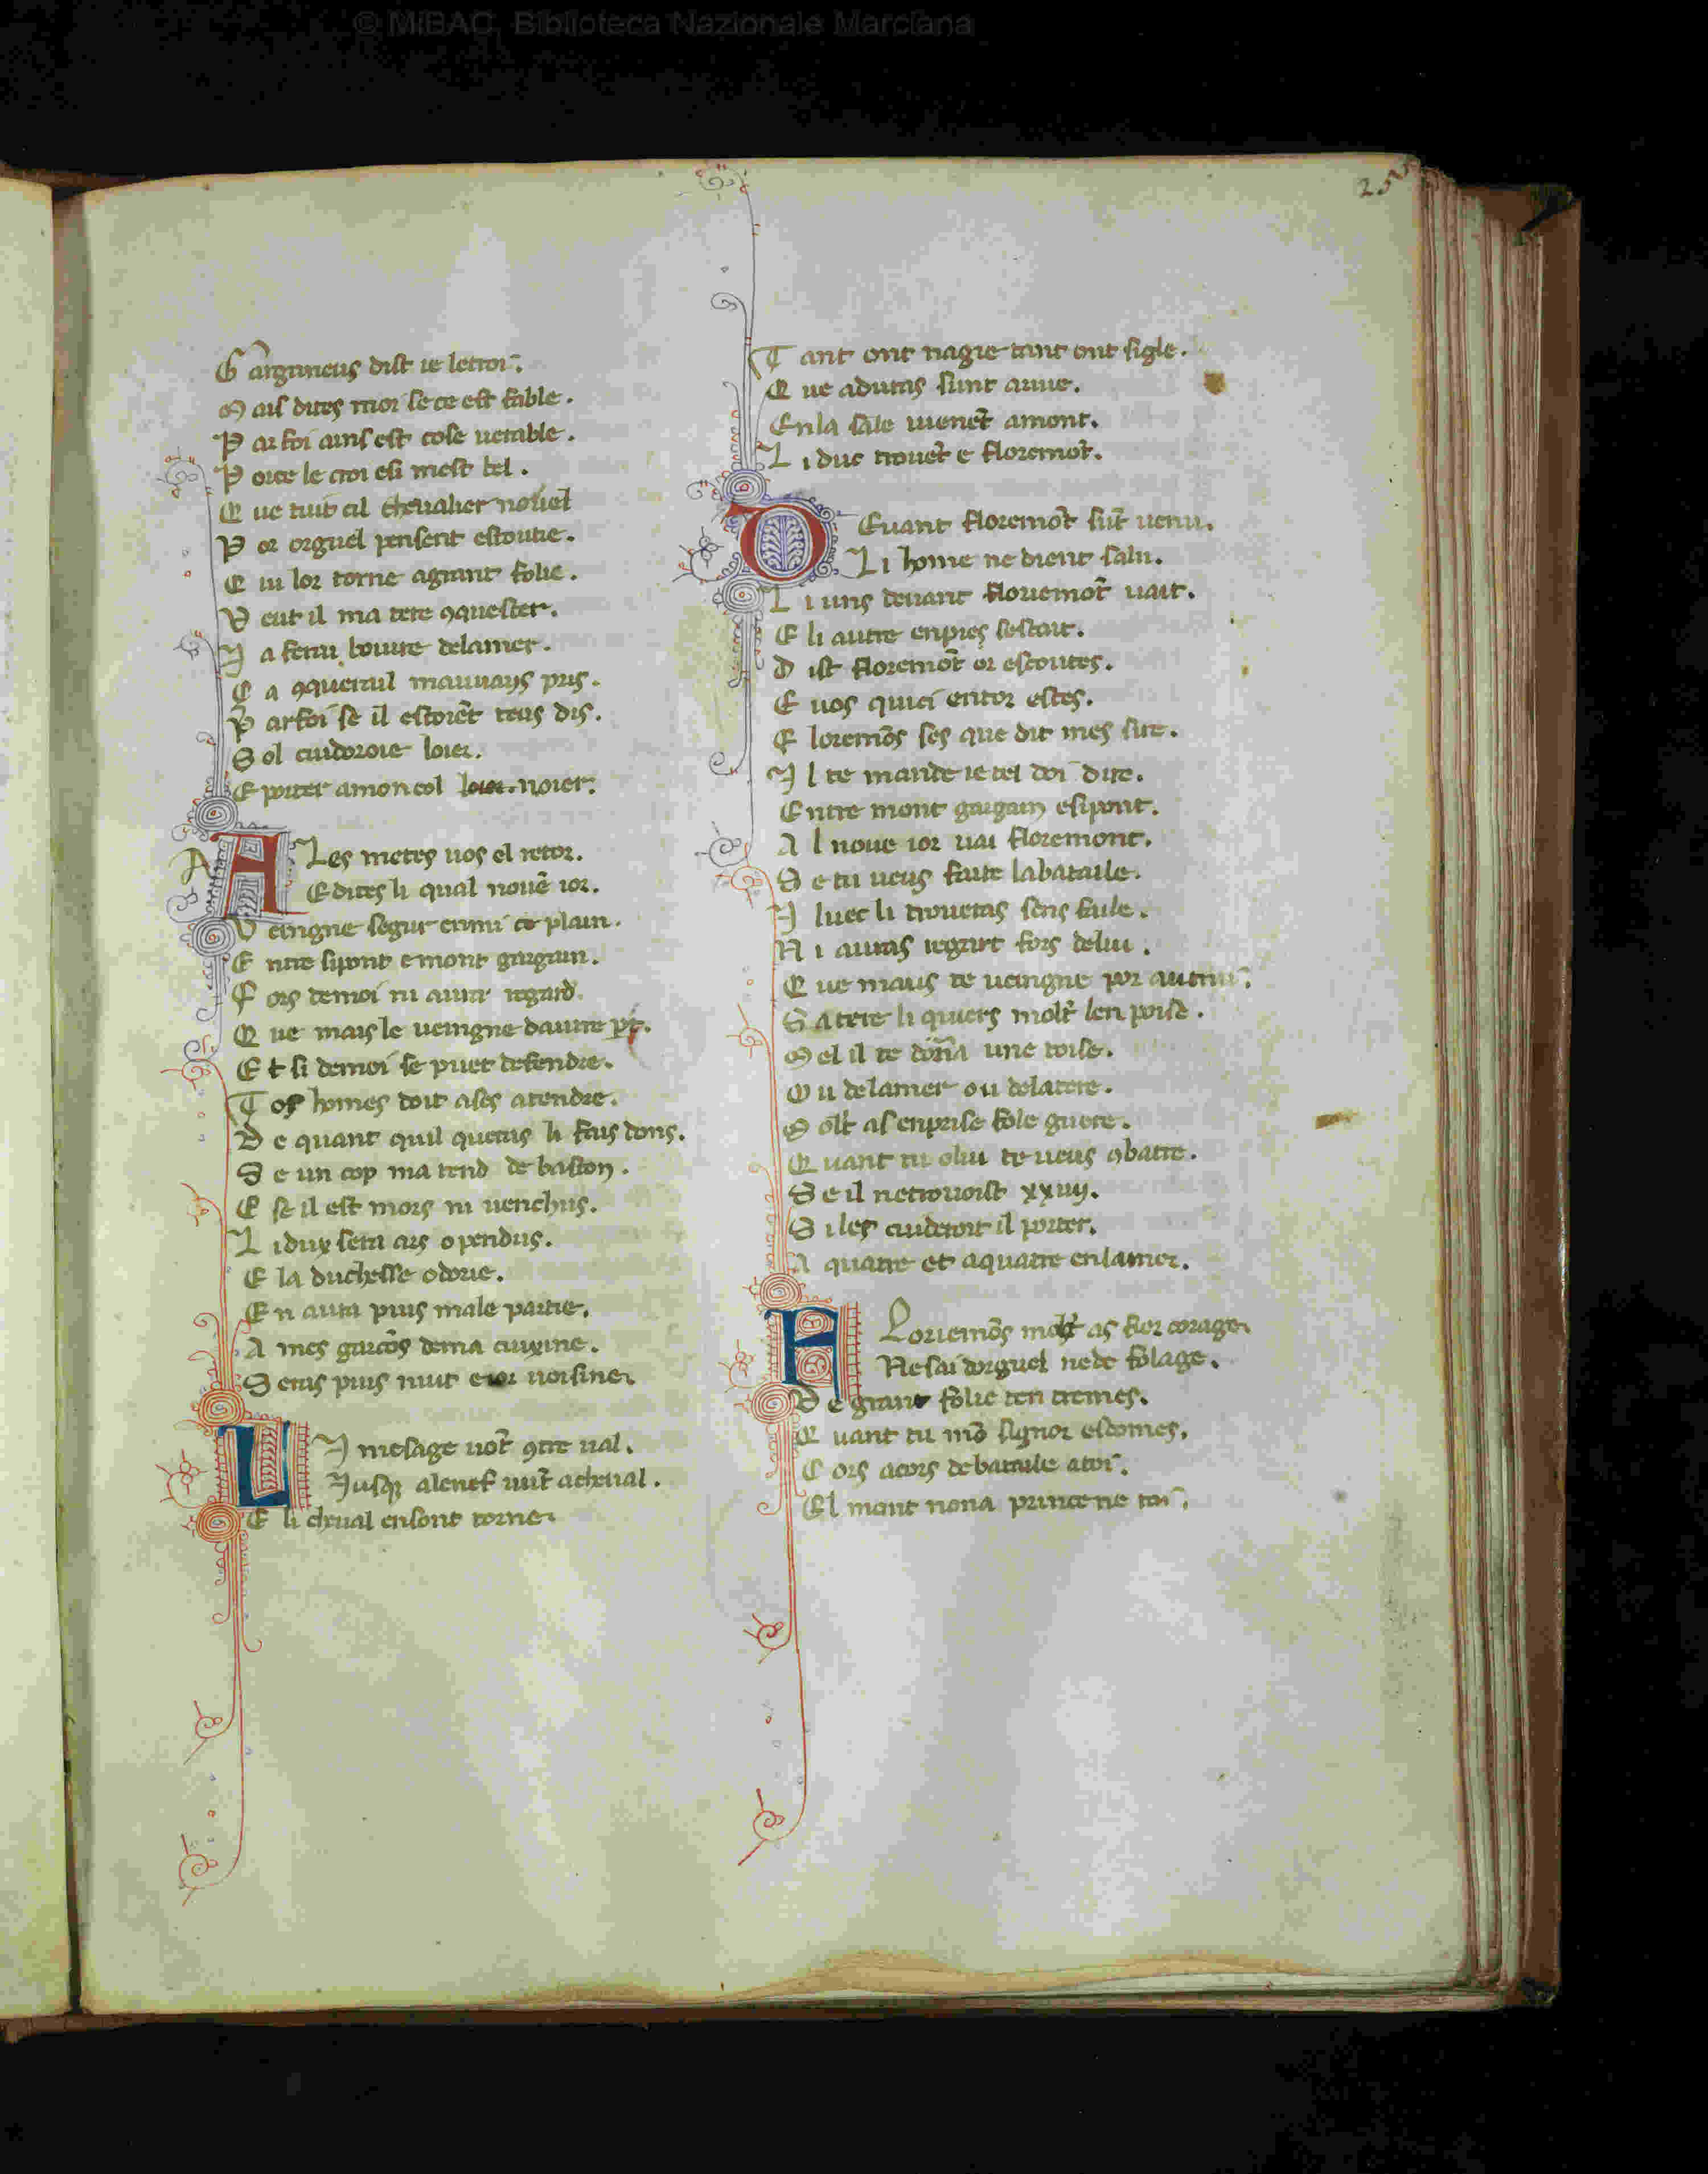 © MiBAC Biblioteca Nazionale Marciana
25
Garganeus dist ie letroi.
Mais dites moi se ce est fable.
Par foi ains est cose uerable.
Porce le croi esi mest bel.
Que tuit cil cheualier nouel
Por orguel pensent estoutie.
Qui lor torne agrant folie.
Veut il ma tere ꝯquester.
Ia ferai boiure delamer.
Ca ꝯquerrail mauuays pris.
Par foi se il estoiēt teus dis.
Sol cuidoroie loier.
E porter amoncol noier.
A
ALes metes uos el retor.
E dites li qual nouē ior.
Veingne segur enmi ce plain.
Entre sipont e mont gargain.
Fors demoi ni aura regard.
Que mais le ueingne dautre pt.
Et si demoi se puet defendre.
Tos homes doit ases atendre.
De quant quil querras li fais dons.
Se un cop ma rend de baston.
E se il est mors ni uenchus.
Li dux sera ars o pendus.
E la duchesse odorie.
En aura puis male partie.
A mes garcōs dema cuixine.
Seras puis nuit e ior uoisine.
LI mesage uōt ꝯtre ual.
Iusqꝫ alenef uiēt acheual.
E li cheual ensont torne.
Tant ont nagie tant ont sigle.
Que aduras sunt ariue.
Enla sale uienēt amont.
Li duc trouēt e floremōt.
DEuant floremōt sūt uenu.
Li home ne dient salu.
Li uns deuant flouemōt uait.
E li autre enpres sestait.
Dist floremōt or escoutes.
E uos quici entor estes.
Floremōs ses que dit mes sire.
Il te mande ie tel doi dire.
Entre mont gargain esipont.
Al noue ior uai floremont.
Se tu ueus faire labataile.
Iluec li troueras sens faile.
Ni auras regart fors delui.
Que maus te ueingne por autrui.
Sa tere li quiers molt len poise.
Mel il te dōra une toise.
Ou delamer ou delatere.
Molt as enprise fole guere.
Quant tu olui te ueus ꝯbatre.
Se il netrouoist xxiiij.
Si les cuideroit il porter.
A quatre et aquatre enlamer.
FLoriemōs molt as fier corage.
Ne sai dorguel nede folage.
De grant folie ten tremes.
Quant tu mō signor esdomes.
Cors acors debataile atoi.
El mont nona prince ne roi.